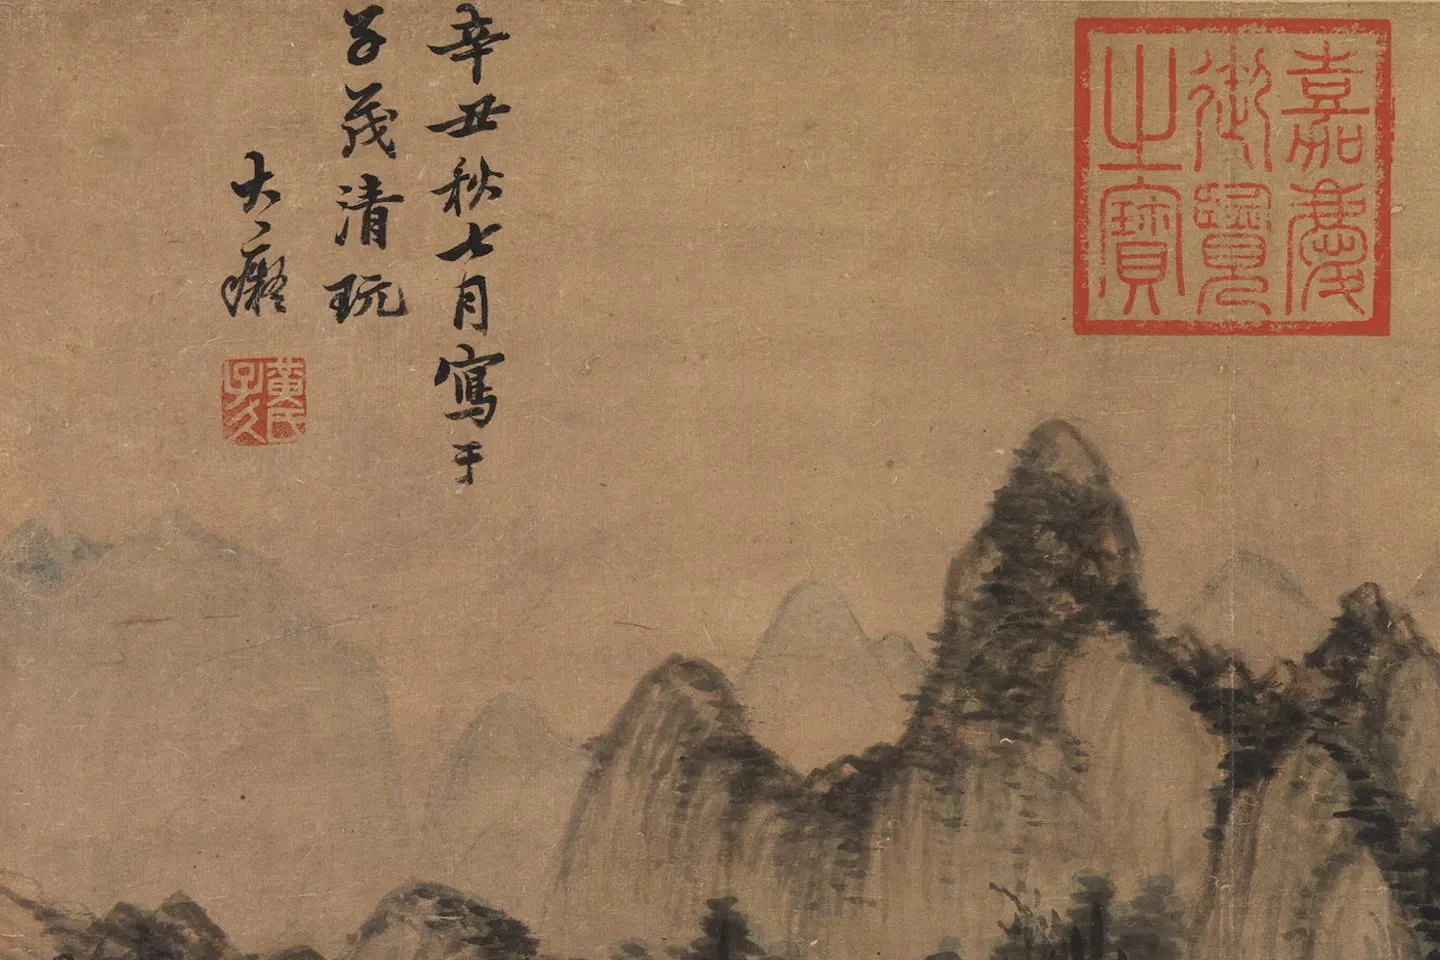 辛丑秋七月寫于
子茂清玩
大癡
黃氏
子久
嘉慶
御覽
之寶